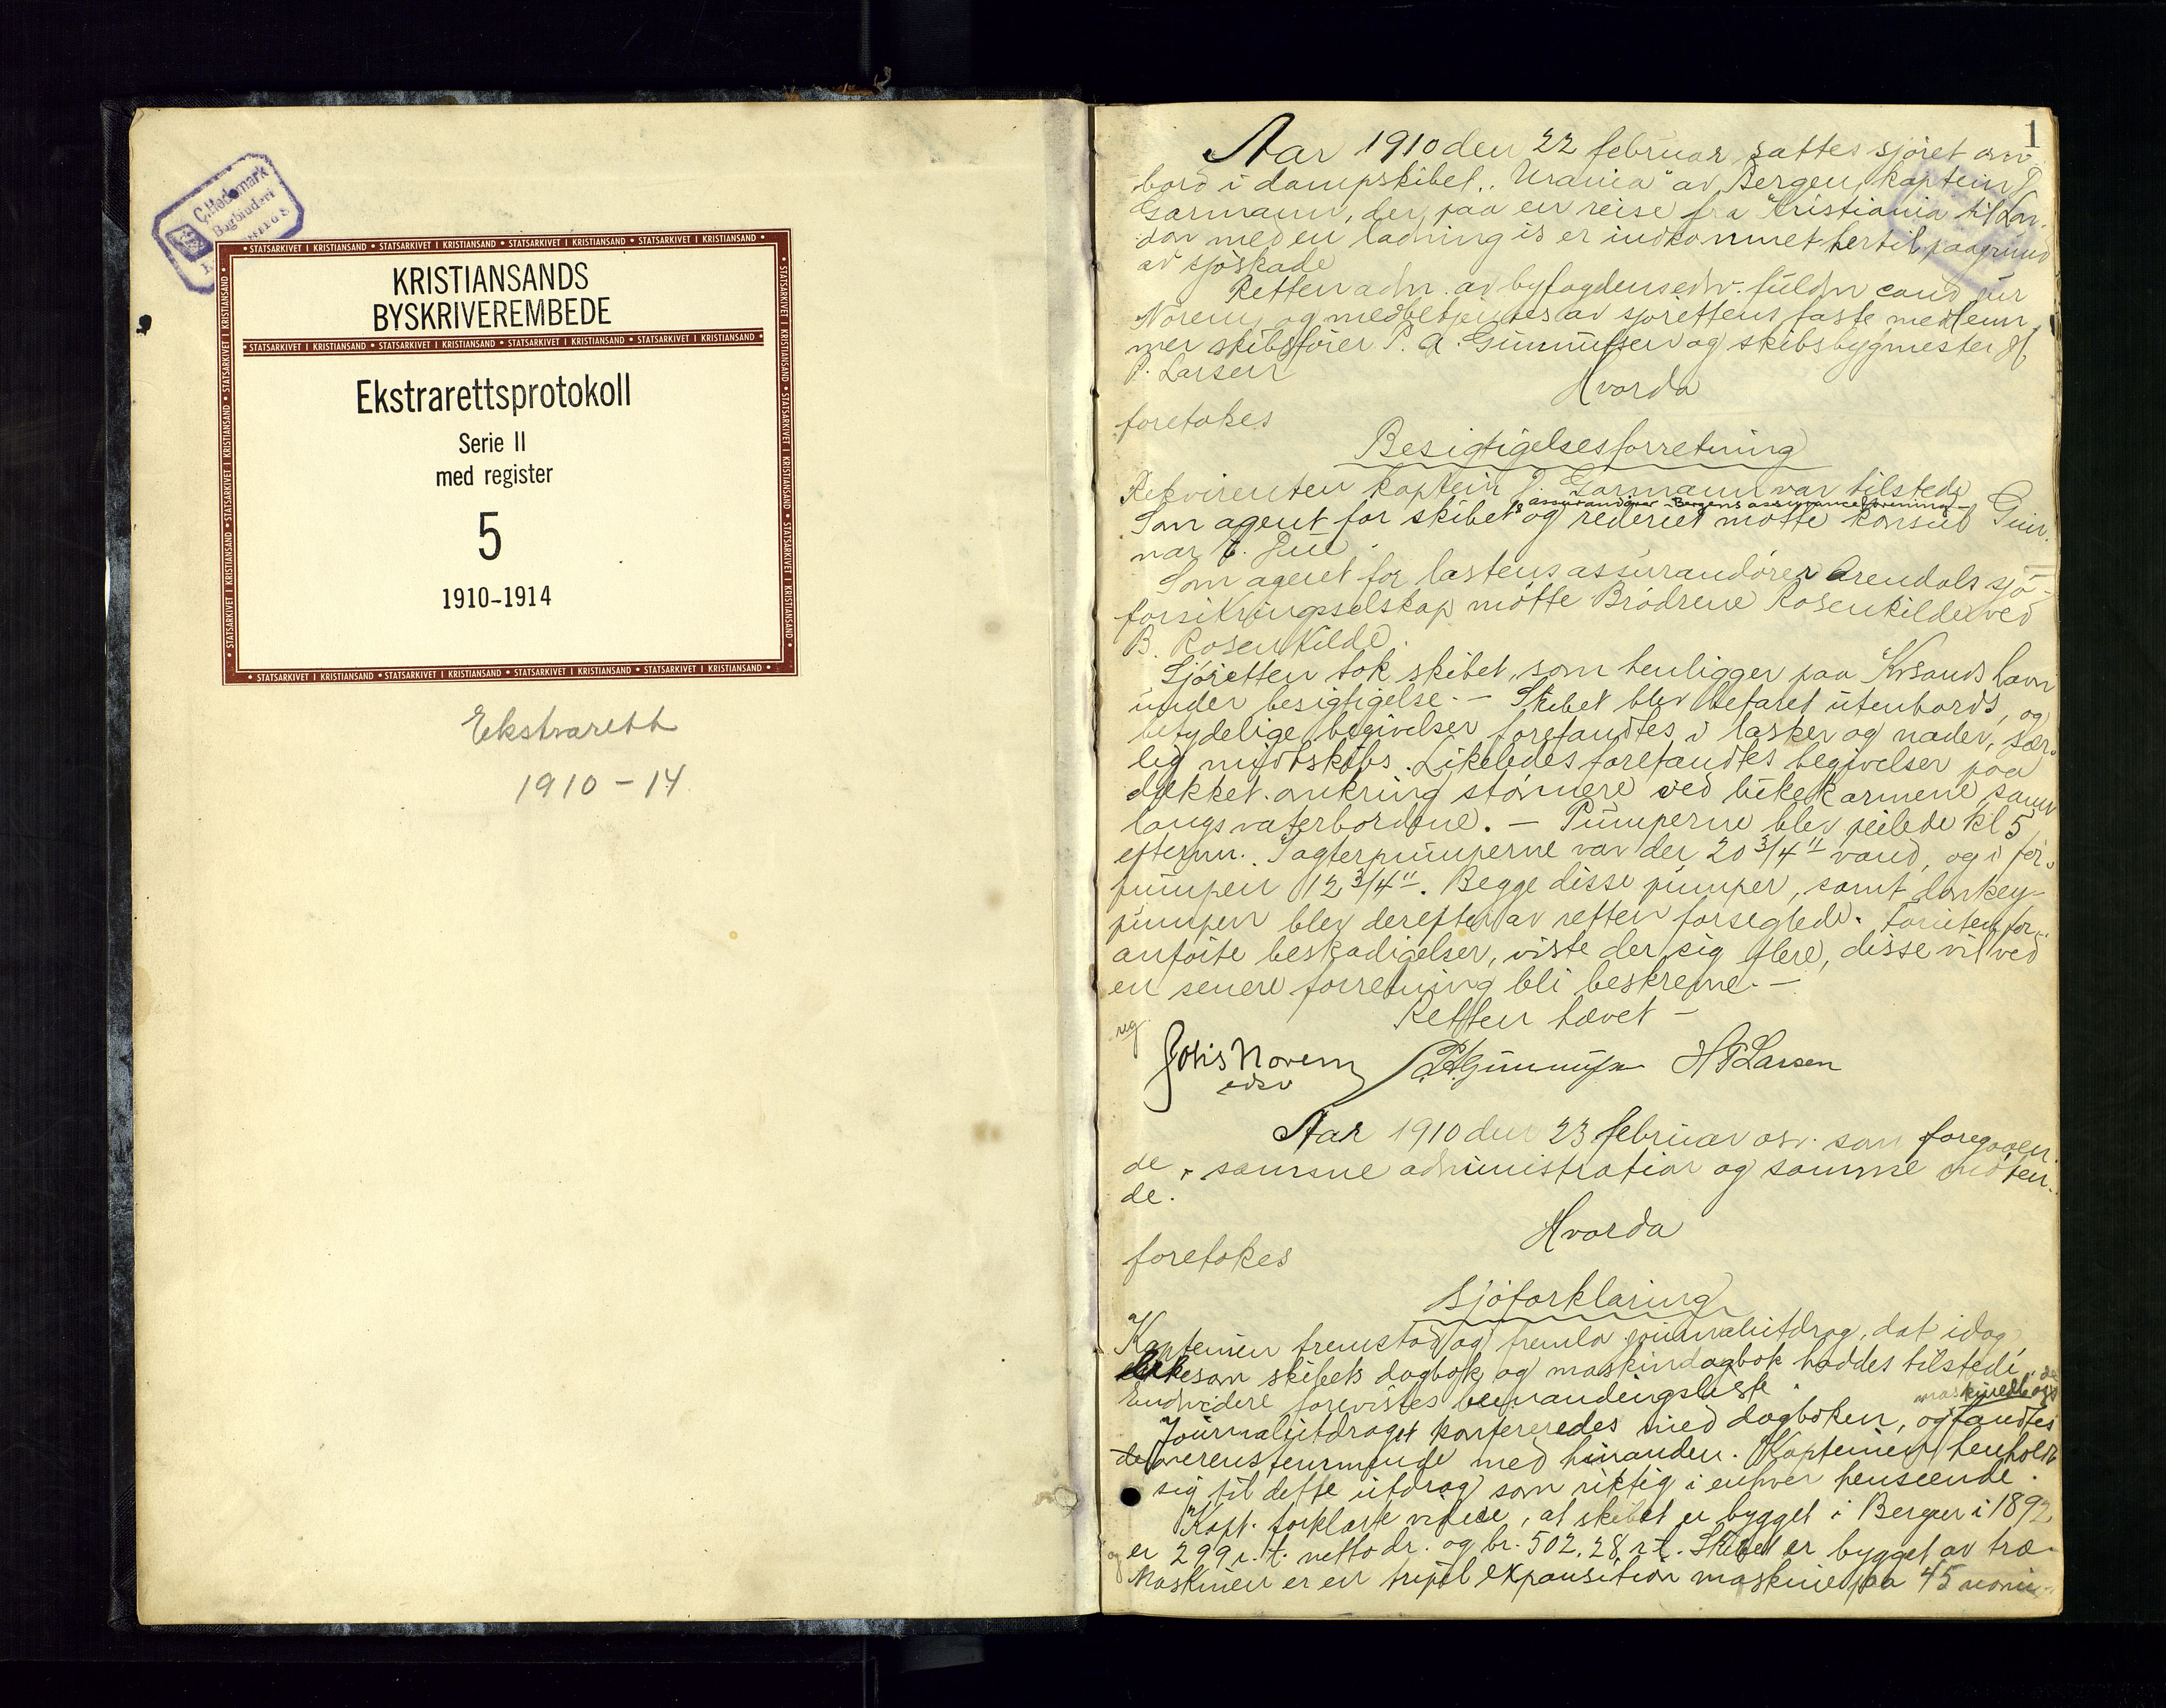 C. Hedemark
Bogbinderi
STATSARKIVET I KRISTIANSAND
KRISTIANSANDS
BYSKRIVEREMBEDE
STATSARKIVET I KRISTIANSAND
Ekstrarettsprotokoll
Serie II
med register
5
1910-1914
STATSARKIVET I KRISTIANSAND
Ekstrarett
1910-14
1
Aar 1910 den 22 februar sattes sjøret om
bord i dampskibet "Urania" av Bergen, kaptein J.
Garmann, der paa en reise fra Kristiania til Lon-
don med en ladning is er indkommet hertil paagrund
av sjøskade
Retten adm. av byfogdens edsv. fuldm cand jur
Norem, og medbetjentes av sjørettens faste medlem-
mer skibsfører P. A. Gunnufsen og skibsbygmester H.
P. Larsen
Hvorda
foretokes
Besigtigelsesforretning
Rekvirenten kaptein J. Garmann var tilstede
s assurandører - Bergens assuranceforening -
Som agent for skibet og rederiet møtte konsul Gun-
nar J.
Som agent for lastens assurandører Arendals sjø-
forsikringsselskap møtte Brødrene Rosenkilde ved
B. Rosenkilde.
Sjøretten tok skibet, som henligger paa Krsands havn
under besigtigelse. - Skibet blev befaret utenbords, og
betydelige begivelser forefandtes i lasker og nader, sær-
lig midtskibs. Likeledes forefandtes begivelser paa
dækket omkring støtnere ved lukekarmene, samt
langs vaterbordene. - Pumperne blev peilede kl 5
efterm. I agterpumperne var der 20 3/4" vand, og i for-
pumpen 12 3/4". Begge disse pumper, samt donkey-
pumpen blev derefter av retten forseglede. Foruten for-
anførte beskadigelser, viste der sig flere, disse vil ved
en senere forretning bli beskrevne. -
Retten hævet -
reg
Johs Norem
edsv
P A Gunnufsen
H P Larsen
Aar 1910 den 23 februar osv. som foregaaen-
de, samme administration og samme møten-
de.
Hvorda
foretokes
Sjøforklaring
Kapteinen fremstod og fremla journalutdrag, dat idag
likesom skibets dagbok og maskindagbok haddes tilstede
Endvidere forevistes bemandingsliste.
Journalutdraget konfereredes med dagboken, og fandtes
de overensstemmende med hinanden. Kapteinen henholdt
sig til dette utdrag som riktig i enhver henseende.
Kapt. forklarte videre, at skibet er bygget i Bergen i 1892
er 299 r. t. netto dr. og br. 502,28 r.t. Skibet er bygget av træ.
Maskinen er en tripel expansition maskine paa 45 nomi-